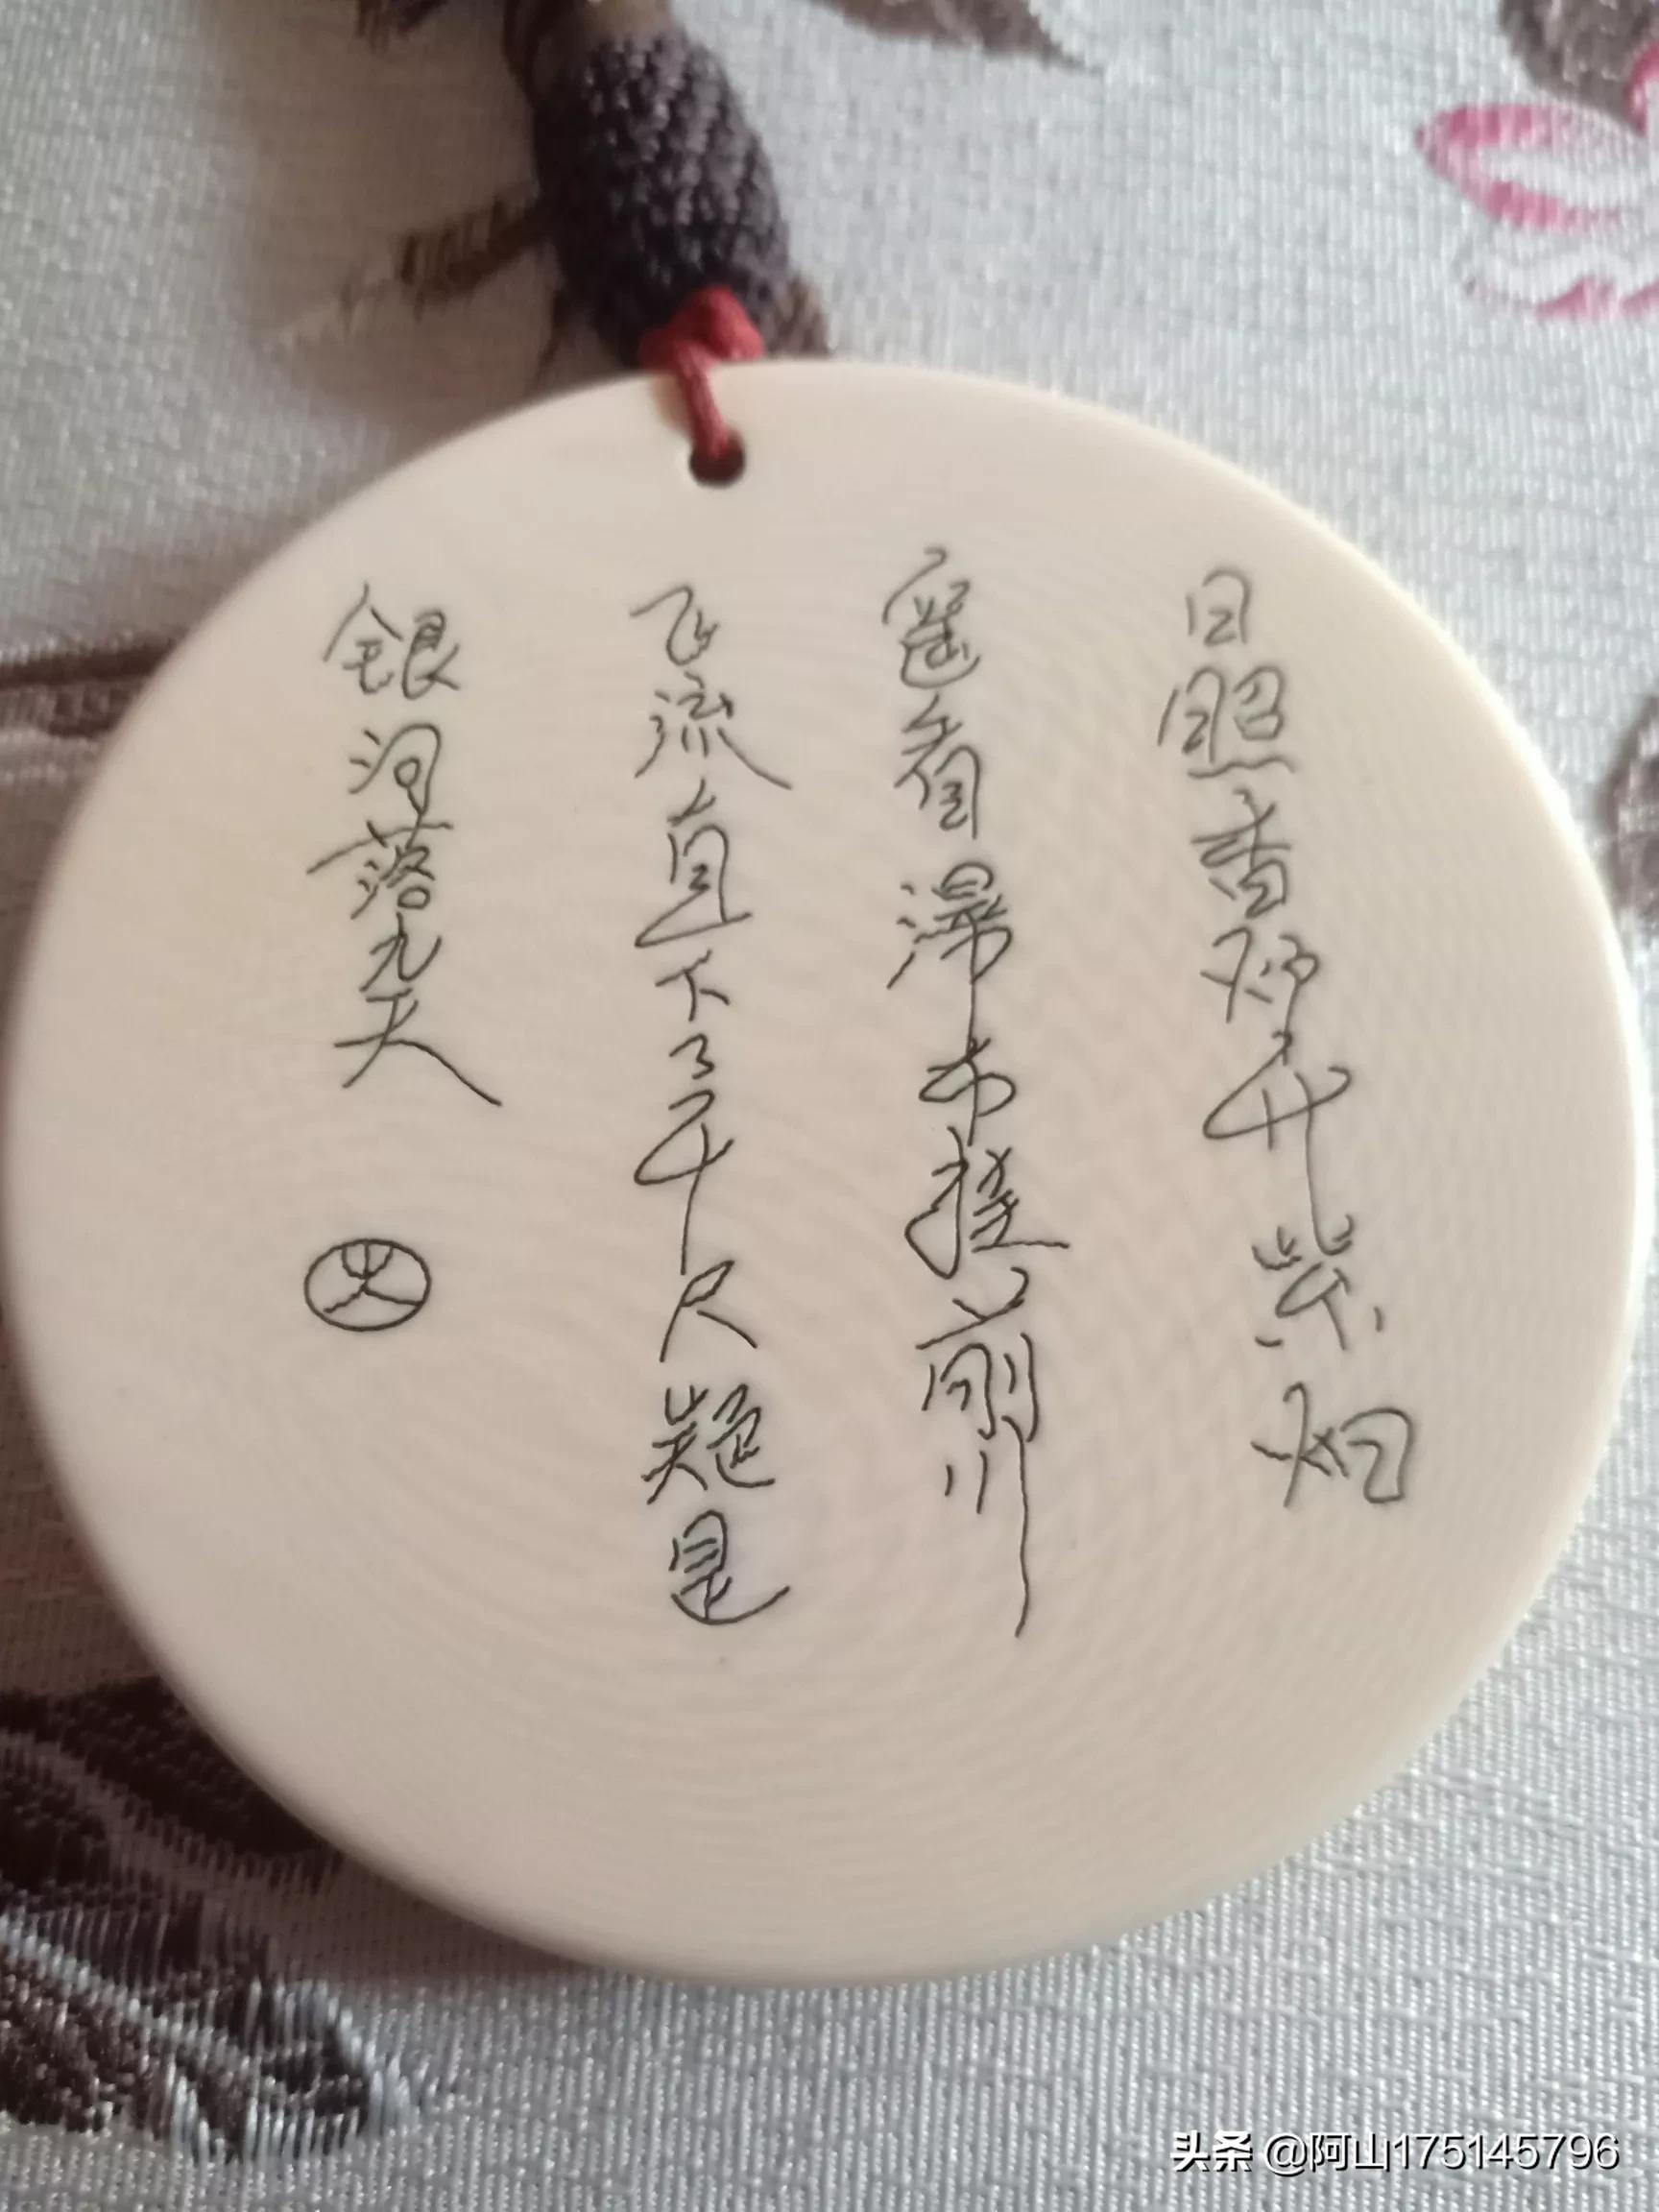 日照香炉升紫烟
遥看瀑布挂前川
飞流直下三千尺疑是
銀河落九天
头条 @阿山175145796